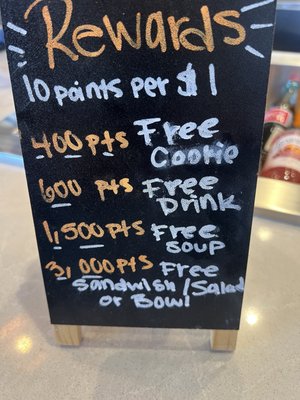 Rewards
10 points per $1
400 pts Free
Cookie
600 pts Free
Drink
1,500 pts Free
Soup
3,000 pts Free
Sandwish/Salad
or Bowl